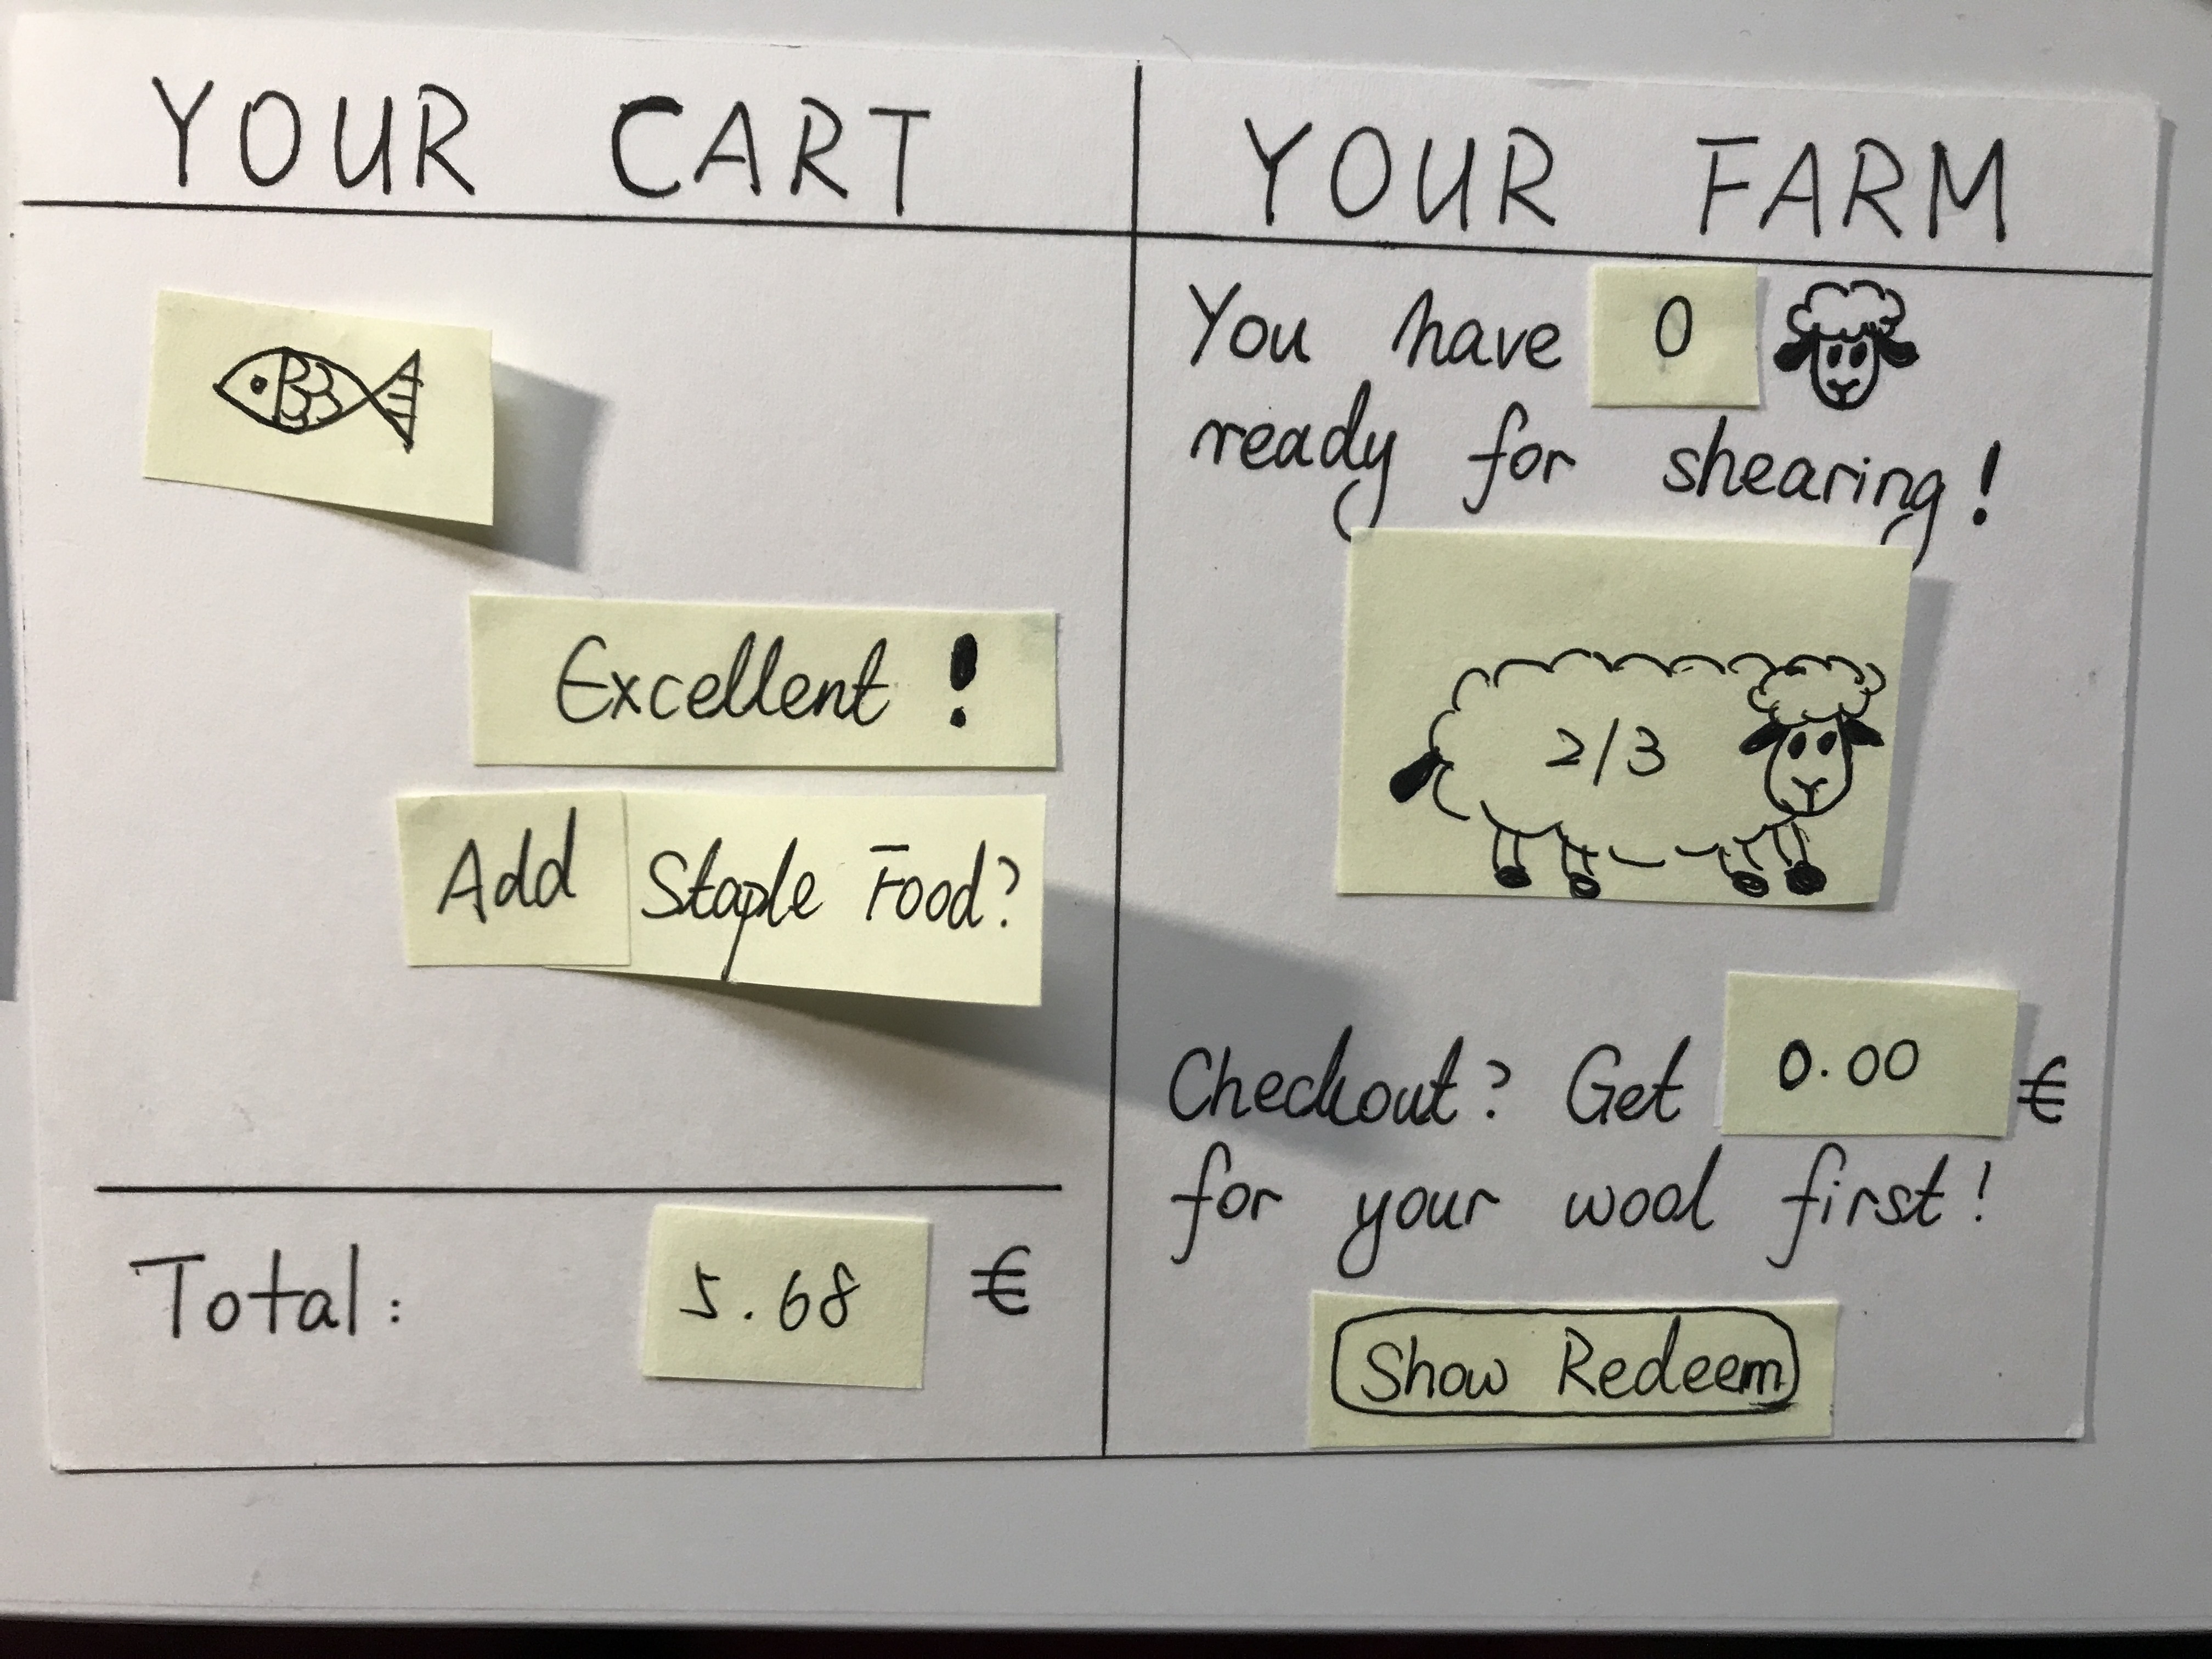 YOUR CART
Excellent !
Add Staple Food?
Total: 5.68 €
YOUR FARM
You have 0
ready for shearing!
2/3
Checkout? Get 0.00 €
for your wool first!
Show Redeem